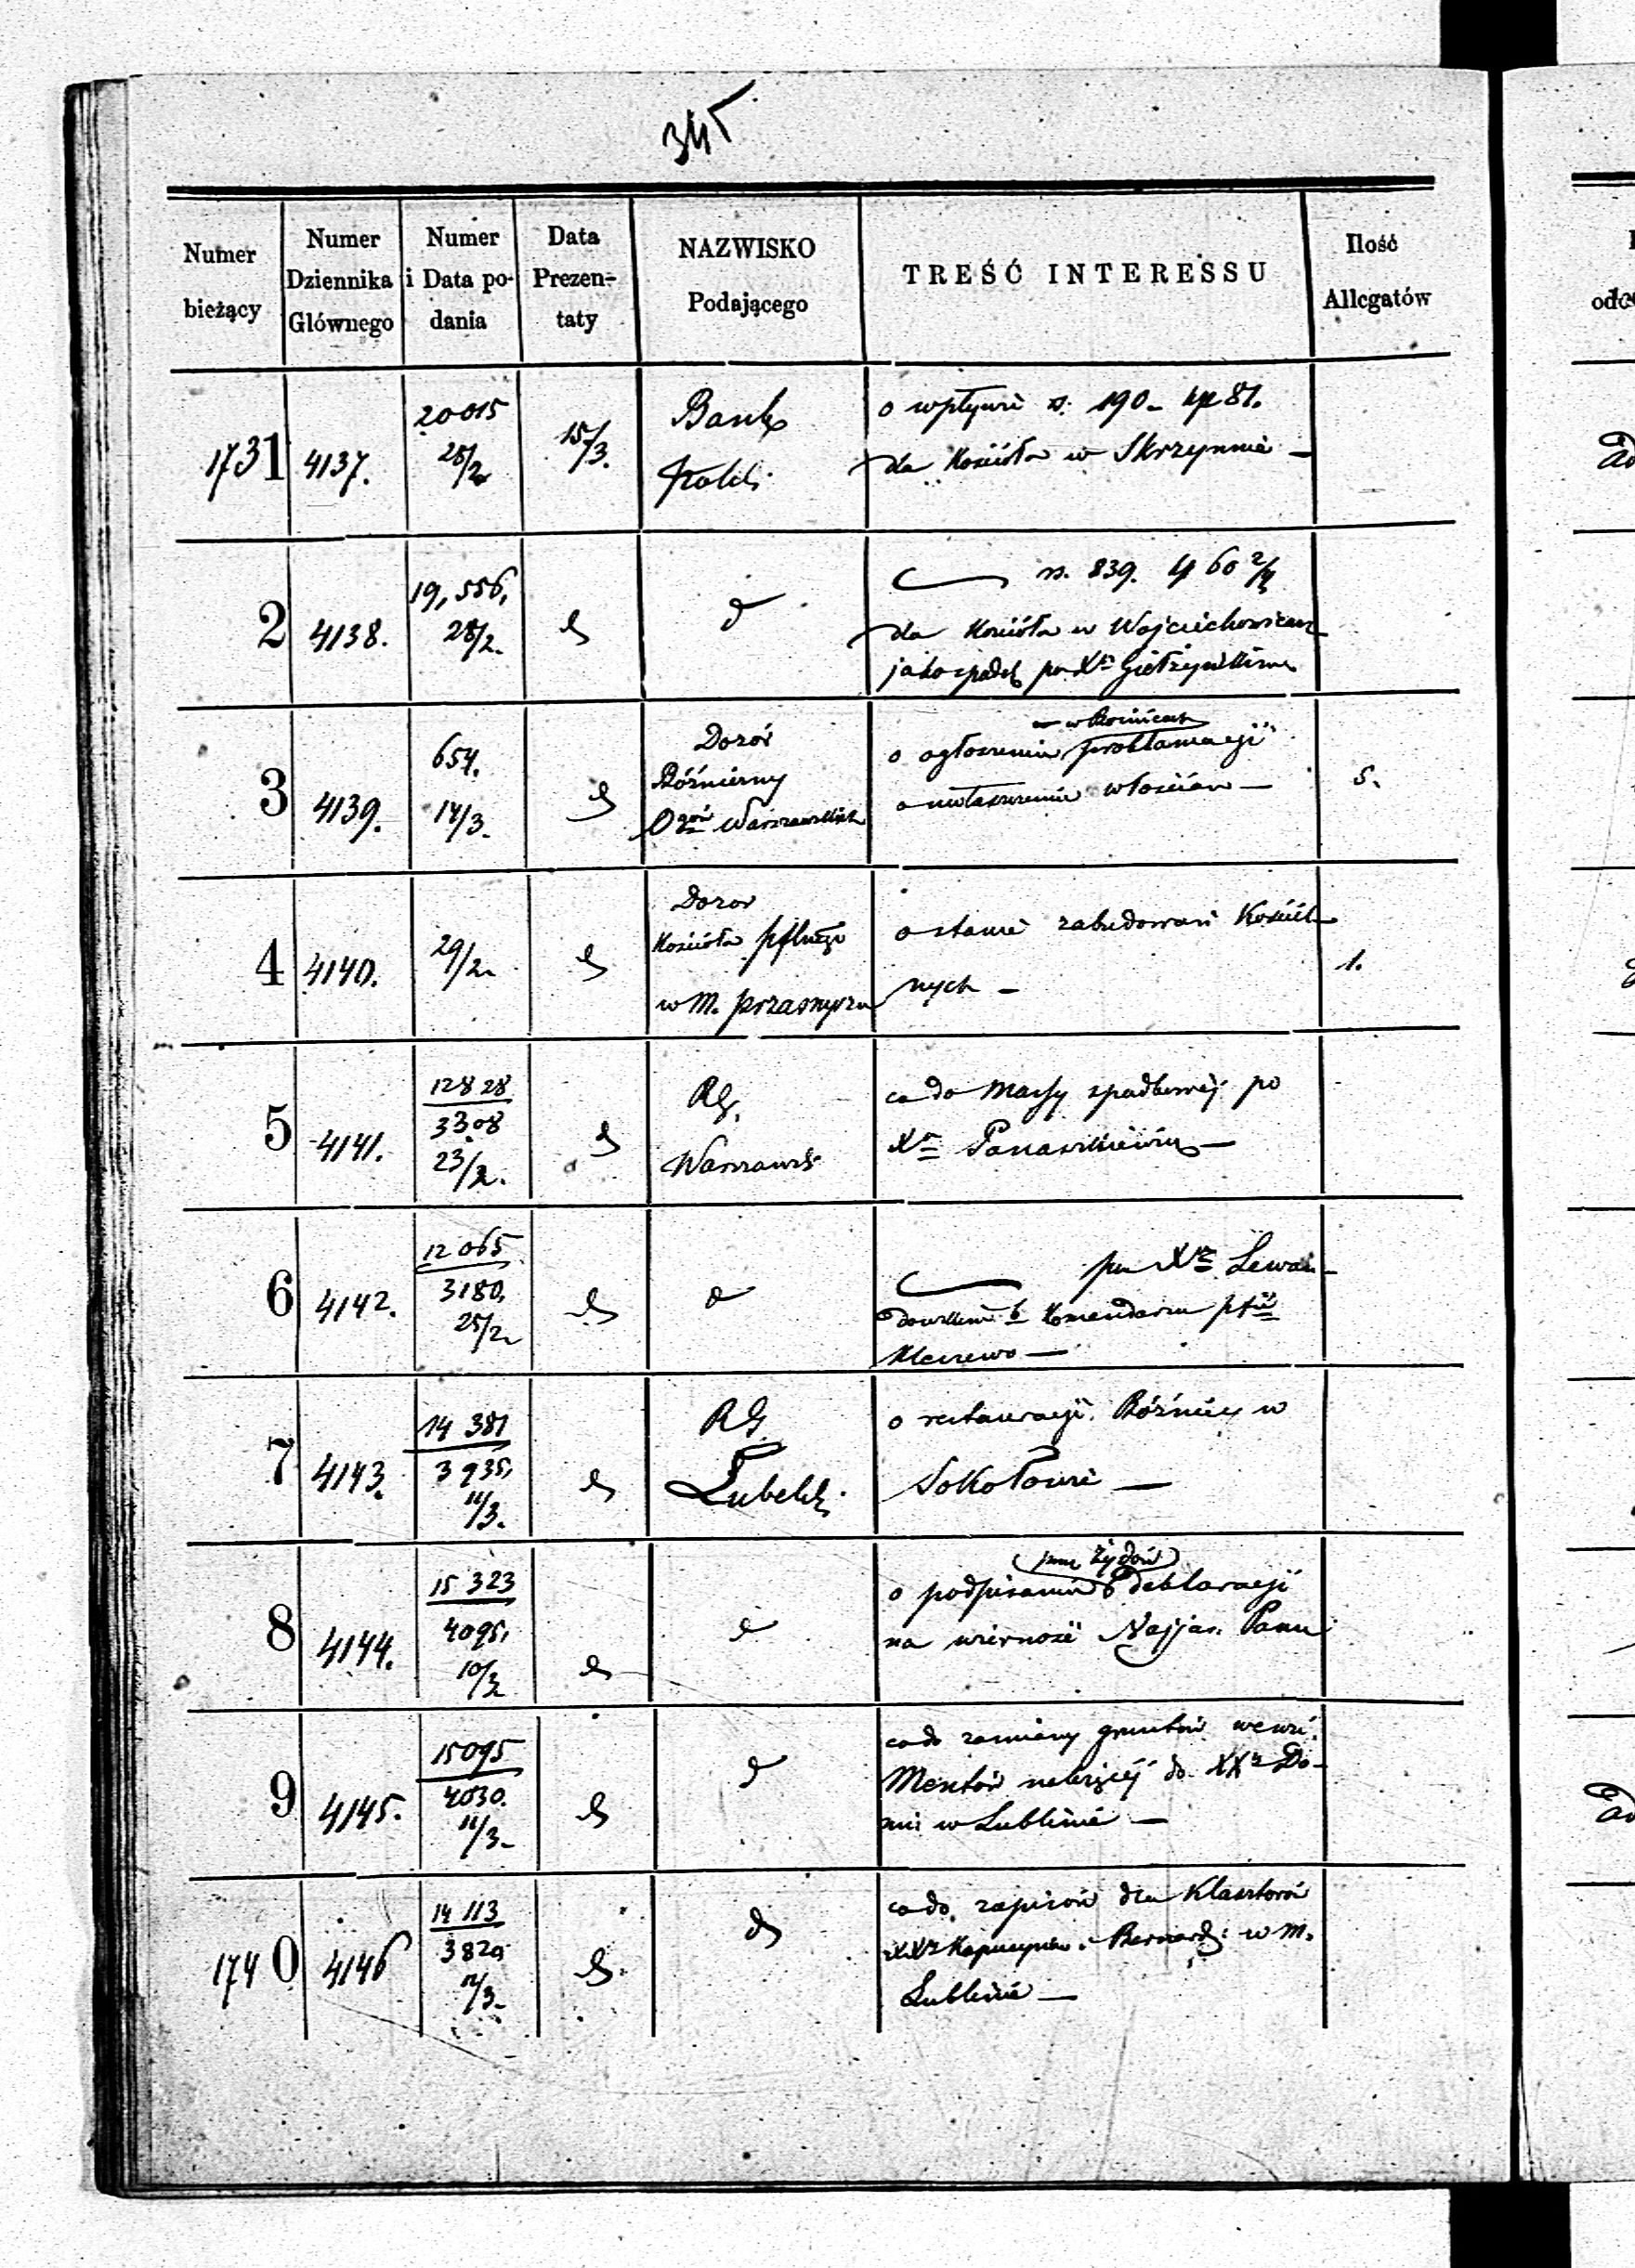 345
Numer bieżący
Numer Dziennika Głównego
Numer i Data podania
Data Prezentaty
NAZWISKO Podającego
TREŚĆ INTERESSU
Ilość Allegatów
1731
4137.
20015
28/2
15/3.
Bank
Polski
o wpływie rs. 190 kp 81.
dla Kościoła w Skrzynnie —
2
4138.
19,556,
28/2.
d
rs. 839. kp 60 2/4
dla Kościoła w Wojciechowicach
jako spadek po Xs
3
4139.
654.
14/3.
Dozór
Bóżniczny
Ogów Warszawskich
w Bóżnicach
o ogłoszeniu proklamacyi
o uwłaszczeniu włościan —
5.
4
4140.
29/2.
Dozor
Kościoła
w M. Przasnyszu
o stanie zabudowań Kościel
nych —
1.
5
4141.
12828
3308
23/2.
RG.
Warszawski
co do Massy spadkowej po
Xs
6
4142.
12065
3180,
25/2
d
po Xs Lewan-
dowskim b Komendarzu pfii
Kleczewo —
7
4143.
14 381
3935,
11/3.
RG
Lubelski
o restauracyi Bóżnicy w
Sokołowie —
8
4144.
15 323
4095,
10/3
d
(przez Żydów)
o podpisaniu deklaracyi
na wierność Najjaś. Panu
9
4145.
15095
4030.
11/3-
d
co do zamiany gruntów
należącej do XXw Do-
mi w Lublinie —
1740
4146
14 113
3820
11/3-
d
co do zapisów dla Klasztorów
XXw Kapucynów i Bernard: w M.
Lublinie —